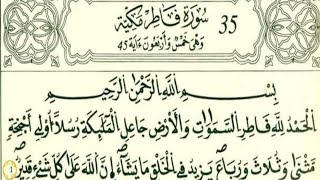 سُورَةُ فَاطِرٍ مَكِّيَّةٌ 35
وَهِيَ خَمْسٌ وَأَرْبَعُونَ ءَايَةً 45
بِسْمِ اللَّهِ الرَّحْمَٰنِ الرَّحِيمِ
الْحَمْدُ لِلَّهِ فَاطِرِ السَّمَٰوَٰتِ وَالْأَرْضِ جَاعِلِ الْمَلَٰٓئِكَةِ رُسُلًا أُو۟لِىٓ أَجْنِحَةٍ
مَّثْنَىٰ وَثُلَٰثَ وَرُبَٰعَ يَزِيدُ فِى الْخَلْقِ مَا يَشَآءُ إِنَّ اللَّهَ عَلَىٰ كُلِّ شَىْءٍ قَدِيرٌ